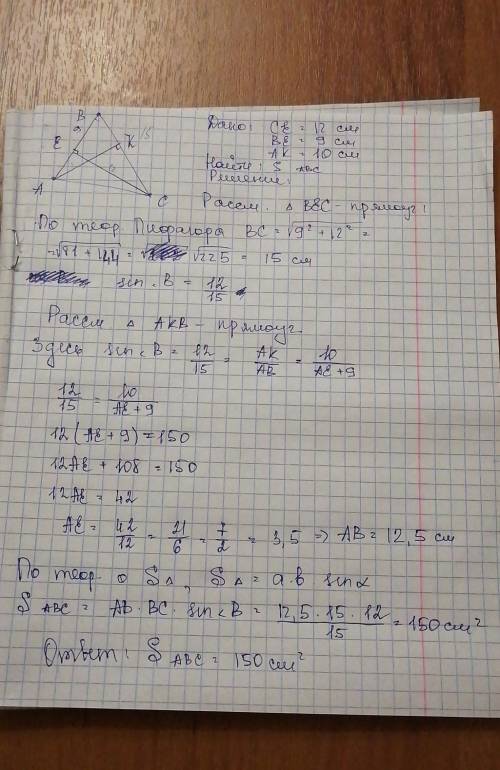 B
9
E
K
15
A
C
Дано: CE = 12 см
BE = 9 см
AK = 10 см
Найти: S ABC
Решение:
Рассм. △ BEC - прямоуг:
По теор. Пифагора BC = √9² + 12² =
= √81 + 144 = √225 = 15 см
sin ∠B = 12/15
Рассм △ AKB - прямоуг.
Здесь sin∠B = 12/15 = AK/AB = 10/AE+9
12/15 = 10/AE+9
12(AE+9)=150
12AE + 108 = 150
12AE = 42
AE = 42/12 = 21/6 = 7/2 = 3,5 => AB = 12,5 см
По теор. о S△, S△ = a·b sinα
S ABC = AB·BC·sin∠B = 12,5·15·12/15 = 150 см²
Ответ: S ABC = 150 см²